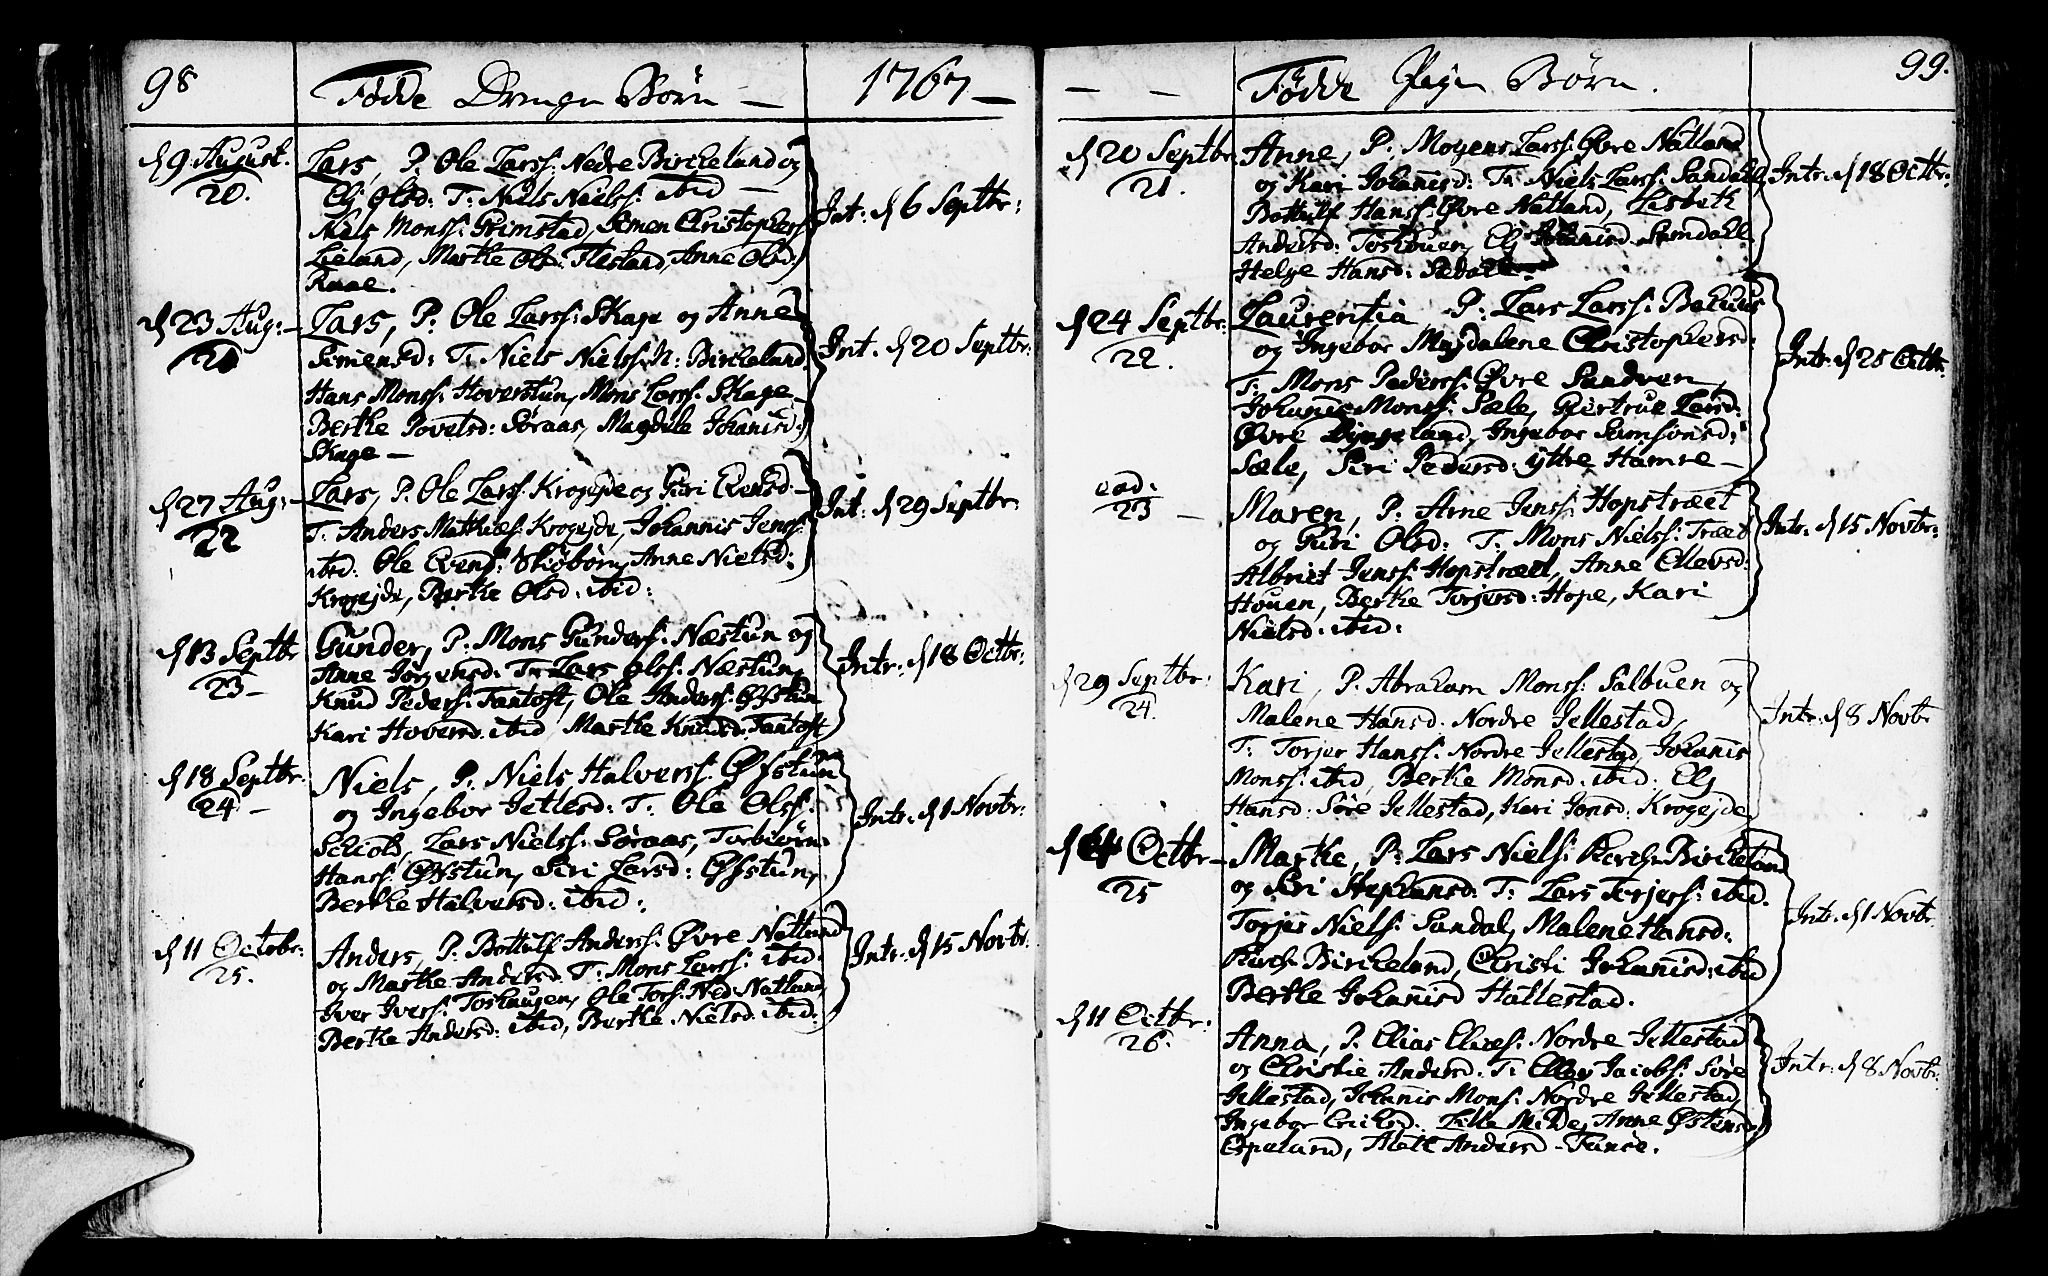 98 Födde Drenge Börn — 1767 —
d 9 August. 20.
Lars, P: Ole Larss: Nedre Birckeland og
Elj Olsd: T: Niels Nielss: ibid —
Niels Monss: Grimstad, Simen Christophers:
Lieland, Marthe Olsd: Flesland, Anne Olsd:
Raae.
Int: d 6 Septbr:
d 23 Aug: — 21
Lars, P: Ole Larss: Skage og Anne
Simensd: T: Niels Nielss: N: Birckeland
Hans Monss: Hoverstun, Mons Larss: Skage —
Berthe Povelsd: Söraas, Magdele Johanisd:
Skage —
Int. d 20 Septbr:
d 27 Aug: — 22
Lars, P: Ole Larss: Krogejde og Guri Evensd: —
T: Anders Mathiæs: Krogejde, Johannis Jenss:
ibid: Ole Evend: Skiöbörn, Anne Nielsd:
Krogejde, Berthe Olsd: ibid:
Int: d 29 Septbr:
d 13 Septbr 23 —
Gunder, P: Mons Gunders: Næstun og
Anne Jörgensd: T: Lars Olss: Næstun,
Knud Peders: Fantoft, Ole Anders: Öfstun
Kari Hoversd: ibid Marthe Knudsd: Fantoft
Intr: d 18 Octbr:
d 18 Septbr. 24 —
Niels, P: Niels Halverss: Öfstun
og Ingebor Jetlesd: T: Ole Olss:
Schiold, Lars Nielss: Söraas, Torbiörn
Hanss: Öfstun, Siri Larsd: Öfstun,
Berthe Halversd: ibid:
Intr: d 1 Novbr:
d 11 Octobr: 25.
Anders, P: Bottulf Anderss: Övre Natland
og Marthe Andersd: T: Mons Larss: ibid.
Iver Iverss: Toshaugen, Ole Torss: Ned: Natland,
Berthe Andersd: ibid, Berthe Nielsd: ibid:
Intr: d 15 Novbr:
— — Födde Pige Börn. 99.
d 20 Septbr. 21.
Anne, P: Mogens Larss: Övre Natland
og Kari Johanisd: T: Niels Larss: Sandahl,
Bottulf Hanss: Övre Natland, Lisbeth
Andersd: Toshouen, Elj Johanisd: Samdahl
Helge Hansd:
Intr: d 18 Octbr.
d 24 Septbr: 22.
Laurentia P: Lars Larss: Bakhuus
og Ingebor Magdalene Christophersd:
T: Mons Pederss: Övre Sandven,
Johanis Monss: Sæle, Giertrue Larsd:
Övre Dyngeland, Ingebor Samsonsd:
Sæle, Siri Pedersd: yttre Hamre —
Intr: d 25 Octbr.
eod: 23 —
Maren, P: Arne Jenss: Hopstræet
og Guri Olsd: T: Mons Nielss: Træet
Albriet Jenss: Hopstræet, Anne Ellevsd:
Houen, Berthe Torjersd: Hope, Kari
Nielsd: ibid:
Intr: d 15 Novbr:
d 29 Septbr: 24.
Kari, P. Abraham Monss: Salbuen og
Malene Hansd. Nordre Jellestad,
T: Torjer Hanss: Nordre Jellestad, Johanis
Monss: ibid, Berthe Monsd: ibid. Elj
Hansd: Söre Jellestad, Kari Jonsd: Krogejde
Intr: d 8 Novbr
d 4 Octbr — 25
Marthe, P: Lars Niels: Kirch Birckeland
og Siri Stephansd: T: Lars Torjerss: ibid.
Torjer Nielss: Sandal, Malene Hansd:
Kirch Birckeland, Christi Johanisd: ibid
Berthe Johanisd Hallestad.
Intr: d 1 Novbr.
d 11 Octbr: 26.
Anna, P. Elias Eliæs: Nordre Jellestad
og Christie Andersd: T: Ellev Jacobs: Söre
Jellestad, Johanis Mons: Nordre Jellestad,
Ingebor Ericksd. Lille Milde, Anne Östensd:
Espeland, Alett Andersd — Fanöe.
Intr: d 8 Novbr: